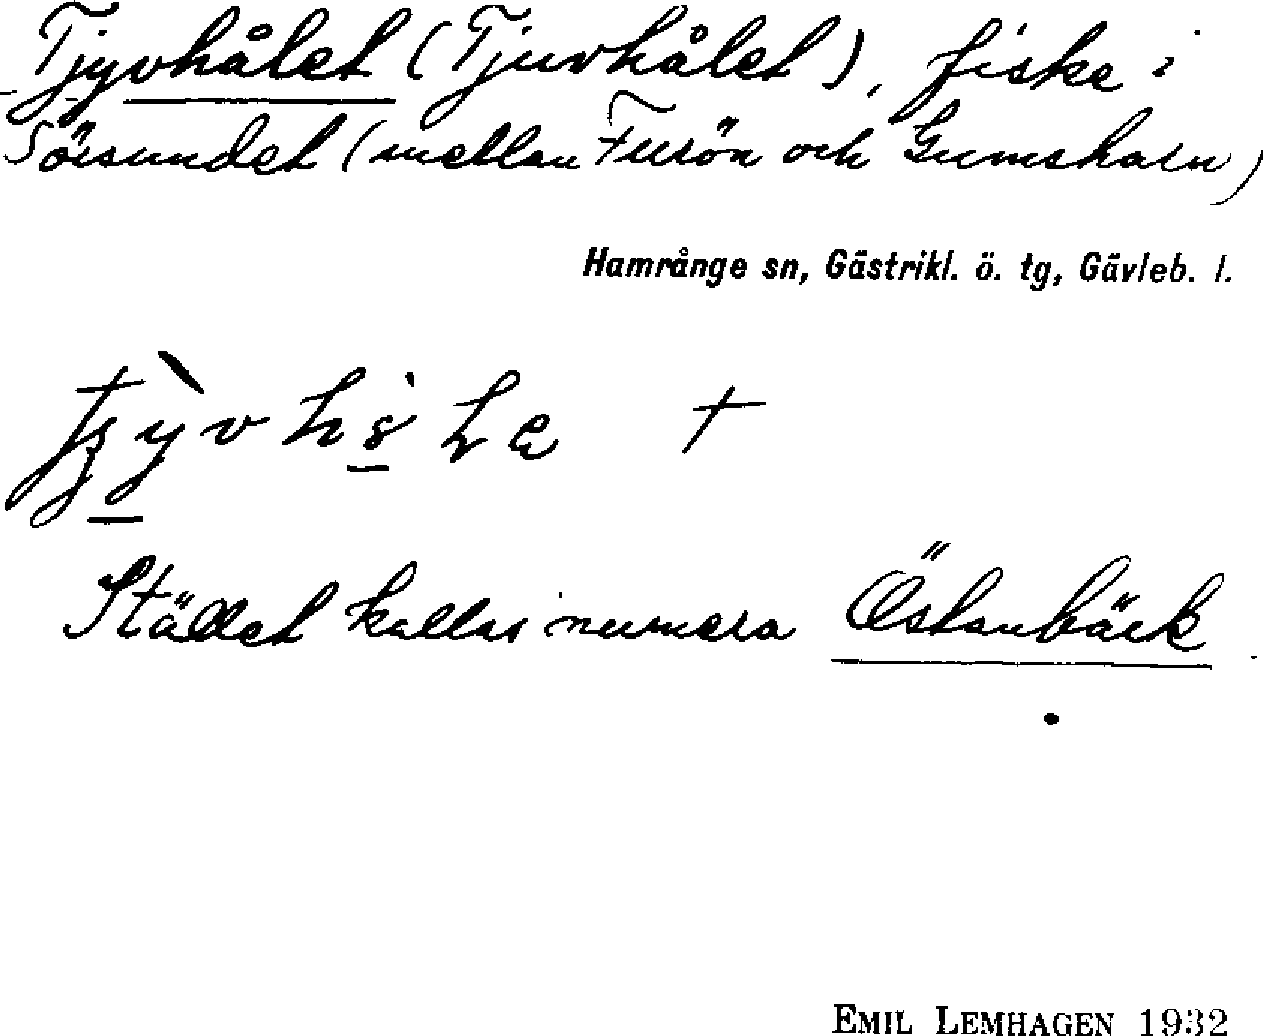 Tjyvhålet (Tjuvhålet), fiske i
Sörsundet (mellan Furön och Gumsharn)
Hamrånge sn, Gästrikl. ö. tg, Gävleb. l.
†
Stället kallas numera Östanbäck
EMIL LEMHAGEN 1932